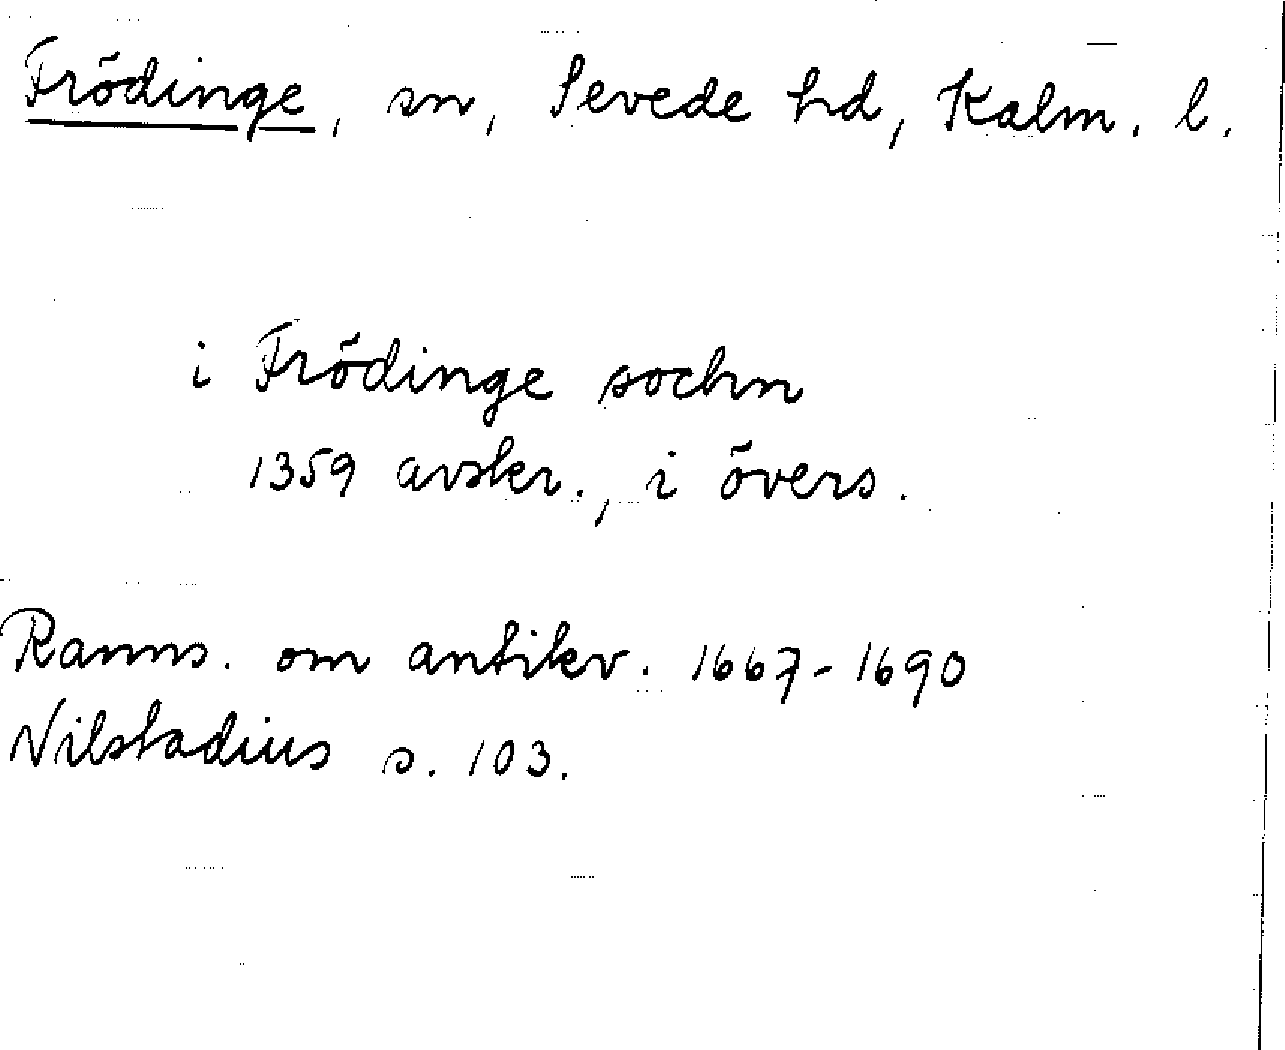 Frödinge, sn, Sevede hd, Kalm. l.
i Frödinge sochn
1359 avskr., i övers.
Ranns. om antikv. 1667-1690
Nilstadius s. 103.